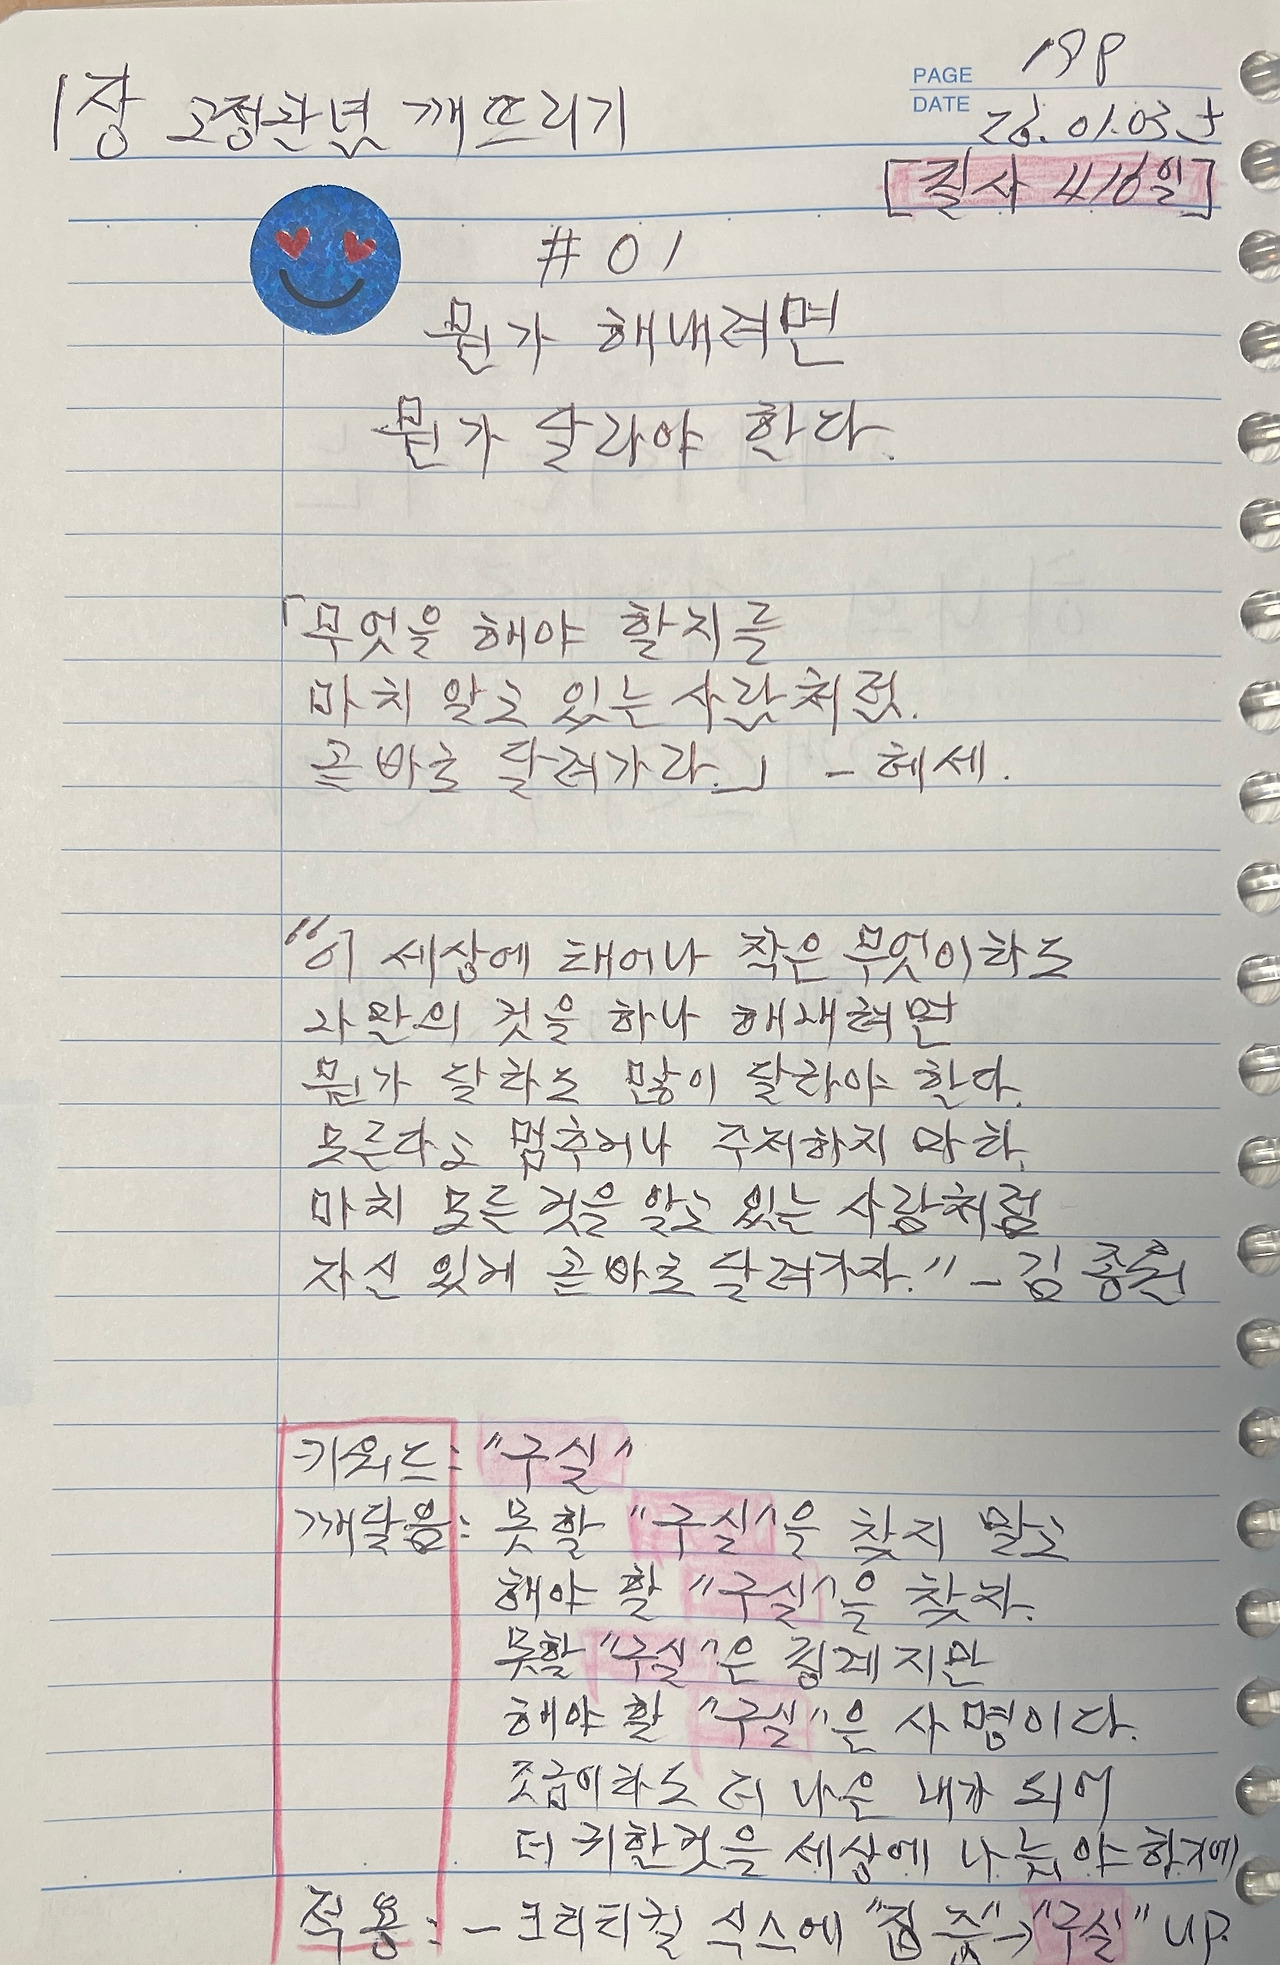 1장 고정관념 깨뜨리기
PAGE 19P
DATE 26.01.03 토
[필사 416일]
#01
뭔가 해내려면
뭔가 달라야 한다.
「무엇을 해야 할지를
마치 알고 있는 사람처럼.
곧바로 달려가라.」 - 헤세.
"이 세상에 태어나 작은 무엇이라도
나만의 것을 하나 해내려면
뭔가 달라도 많이 달라야 한다.
모른다고 멈추거나 주저하지 마라.
마치 모든 것을 알고 있는 사람처럼
자신 있게 곧바로 달려가자." - 김종원
키워드: "구실"
깨달음: 못할 "구실"을 찾지 말고
해야 할 "구실"을 찾자.
못할 "구실"은 핑계지만
해야 할 "구실"은 사명이다.
조금이라도 더 나은 내가 되어
더 귀한것을 세상에 나눠야 하기에
적용: - 크리티컬 식스에 "집중"→"구실" up.